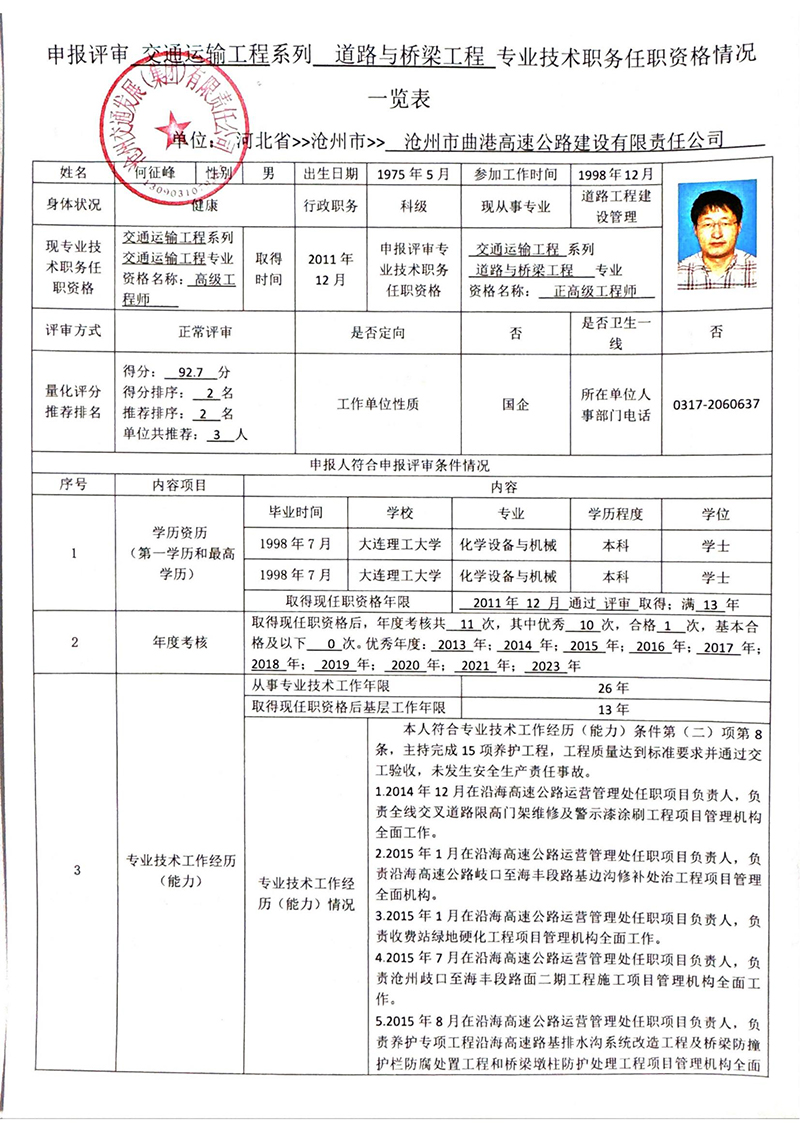 申报评审 交通运输工程系列 道路与桥梁工程 专业技术职务任职资格情况
一览表
单位： 河北省>>沧州市>> 沧州市曲港高速公路建设有限责任公司
沧州交通发展（集团）有限责任公司
姓名 何征峰 性别 男 出生日期 1975 年 5 月 参加工作时间 1998 年 12 月
身体状况 健康 行政职务 科级 现从事专业 道路工程建
设管理
现专业技
术职务任
职资格
交通运输工程系列
交通运输工程专业
资格名称： 高级工
程师
取得
时间
2011 年
12 月
申报评审专
业技术职务
任职资格
交通运输工程 系列
道路与桥梁工程 专业
资格名称： 正高级工程师
评审方式 正常评审 是否定向 否 是否卫生一
线
否
量化评分
推荐排名
得分： 92.7 分
得分排序： 2 名
推荐排序： 2 名
单位共推荐： 3 人
工作单位性质 国企
所在单位人
事部门电话
0317-2060637
申报人符合申报评审条件情况
序号 内容项目 内容
1
学历资历
（第一学历和最高
学历）
毕业时间 学校 专业 学历程度 学位
1998 年 7 月 大连理工大学 化学设备与机械 本科 学士
1998 年 7 月 大连理工大学 化学设备与机械 本科 学士
取得现任职资格年限 2011 年 12 月 通过 评审 取得；满 13 年
2 年度考核
取得现任职资格后，年度考核共 11 次，其中优秀 10 次，合格 1 次，基本合
格及以下 0 次。优秀年度： 2013 年； 2014 年； 2015 年； 2016 年； 2017 年；
2018 年； 2019 年； 2020 年； 2021 年； 2023 年
3
专业技术工作经历
（能力）
从事专业技术工作年限 26 年
取得现任职资格后基层工作年限 13 年
专业技术工作经
历（能力）情况
本人符合专业技术工作经历（能力）条件第（二）项第 8
条，主持完成 15 项养护工程，工程质量达到标准要求并通过交
工验收，未发生安全生产责任事故。
1.2014 年 12 月在沿海高速公路运营管理处任职项目负责人，负
责全线交叉道路限高门架维修及警示漆涂刷工程项目管理机构
全面工作。
2.2015 年 1 月在沿海高速公路运营管理处任职项目负责人，负
责沿海高速公路岐口至海丰段路基边沟修补处治工程项目管理
全面机构。
3.2015 年 1 月在沿海高速公路运营管理处任职项目负责人，负
责收费站绿地硬化工程项目管理机构全面工作。
4.2015 年 7 月在沿海高速公路运营管理处任职项目负责人，负
责沧州歧口至海丰段路面二期工程施工项目管理机构全面工
作。
5.2015 年 8 月在沿海高速公路运营管理处任职项目负责人，负
责养护专项工程沿海高速路基排水沟系统改造工程及桥梁防撞
护栏防腐处置工程和桥梁墩柱防护处理工程项目管理机构全面